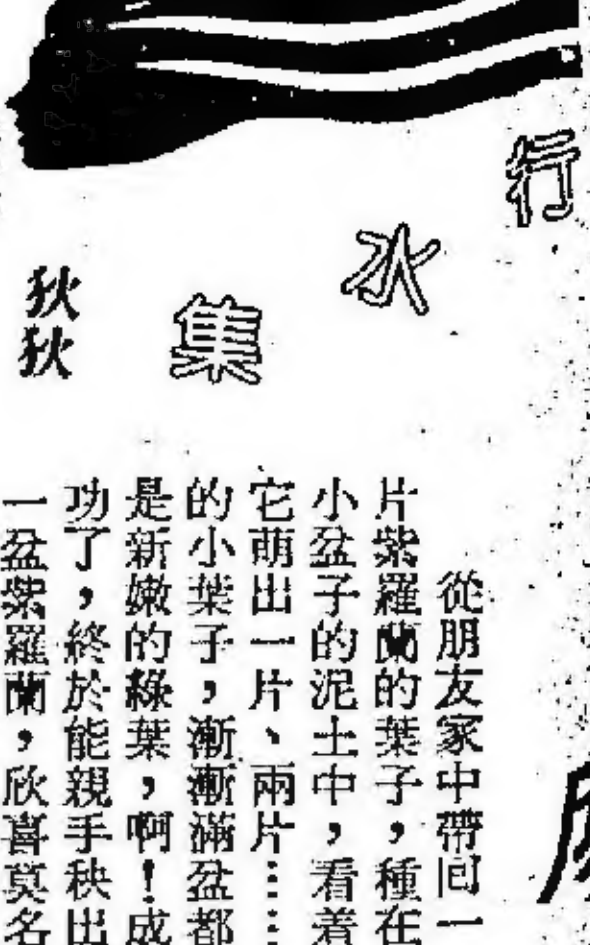 行水集
狄狄
從朋友家中帶回一
片紫羅蘭的葉子，種在
小盆子的泥土中，看着
它萌出一片、兩片……
的小葉子，漸漸滿盆都
是新嫩的綠葉，啊！成
功了，終於能親手秧出
一盆紫羅蘭，欣喜莫名